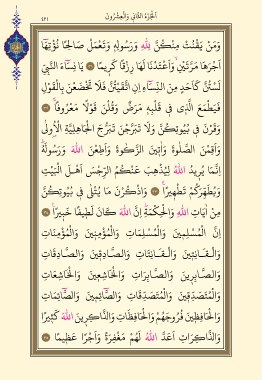 الجزء الثاني والعشرون
٤٢١
وَمَنْ يَقْنُتْ مِنْكُنَّ لِلّٰهِ وَرَسُولِهِ وَتَعْمَلْ صَالِحًا نُؤْتِهَا
اَجْرَهَا مَرَّتَيْنِ وَاَعْتَدْنَا لَهَا رِزْقًا كَرِيمًا ﴿٣١﴾ يَا نِسَاءَ النَّبِيِّ
لَسْتُنَّ كَاَحَدٍ مِنَ النِّسَاءِ اِنِ اتَّقَيْتُنَّ فَلَا تَخْضَعْنَ بِالْقَوْلِ
فَيَطْمَعَ الَّذِى فِى قَلْبِهِ مَرَضٌ وَقُلْنَ قَوْلًا مَعْرُوفًا ﴿٣٢﴾
وَقَرْنَ فِى بُيُوتِكُنَّ وَلَا تَبَرَّجْنَ تَبَرُّجَ الْجَاهِلِيَّةِ الْاُولٰى
وَاَقِمْنَ الصَّلٰوةَ وَاٰتِينَ الزَّكٰوةَ وَاَطِعْنَ اللّٰهَ وَرَسُولَهُ
اِنَّمَا يُرِيدُ اللّٰهُ لِيُذْهِبَ عَنْكُمُ الرِّجْسَ اَهْلَ الْبَيْتِ
وَيُطَهِّرَكُمْ تَطْهِيرًا ﴿٣٣﴾ وَاذْكُرْنَ مَا يُتْلٰى فِى بُيُوتِكُنَّ
مِنْ اٰيَاتِ اللّٰهِ وَالْحِكْمَةِ اِنَّ اللّٰهَ كَانَ لَطِيفًا خَبِيرًا ﴿٣٤﴾
اِنَّ الْمُسْلِمِينَ وَالْمُسْلِمَاتِ وَالْمُؤْمِنِينَ وَالْمُؤْمِنَاتِ
وَالْقَانِتِينَ وَالْقَانِتَاتِ وَالصَّادِقِينَ وَالصَّادِقَاتِ
وَالصَّابِرِينَ وَالصَّابِرَاتِ وَالْخَاشِعِينَ وَالْخَاشِعَاتِ
وَالْمُتَصَدِّقِينَ وَالْمُتَصَدِّقَاتِ وَالصَّائِمِينَ وَالصَّائِمَاتِ
وَالْحَافِظِينَ فُرُوجَهُمْ وَالْحَافِظَاتِ وَالذَّاكِرِينَ اللّٰهَ كَثِيرًا
وَالذَّاكِرَاتِ اَعَدَّ اللّٰهُ لَهُمْ مَغْفِرَةً وَاَجْرًا عَظِيمًا ﴿٣٥﴾